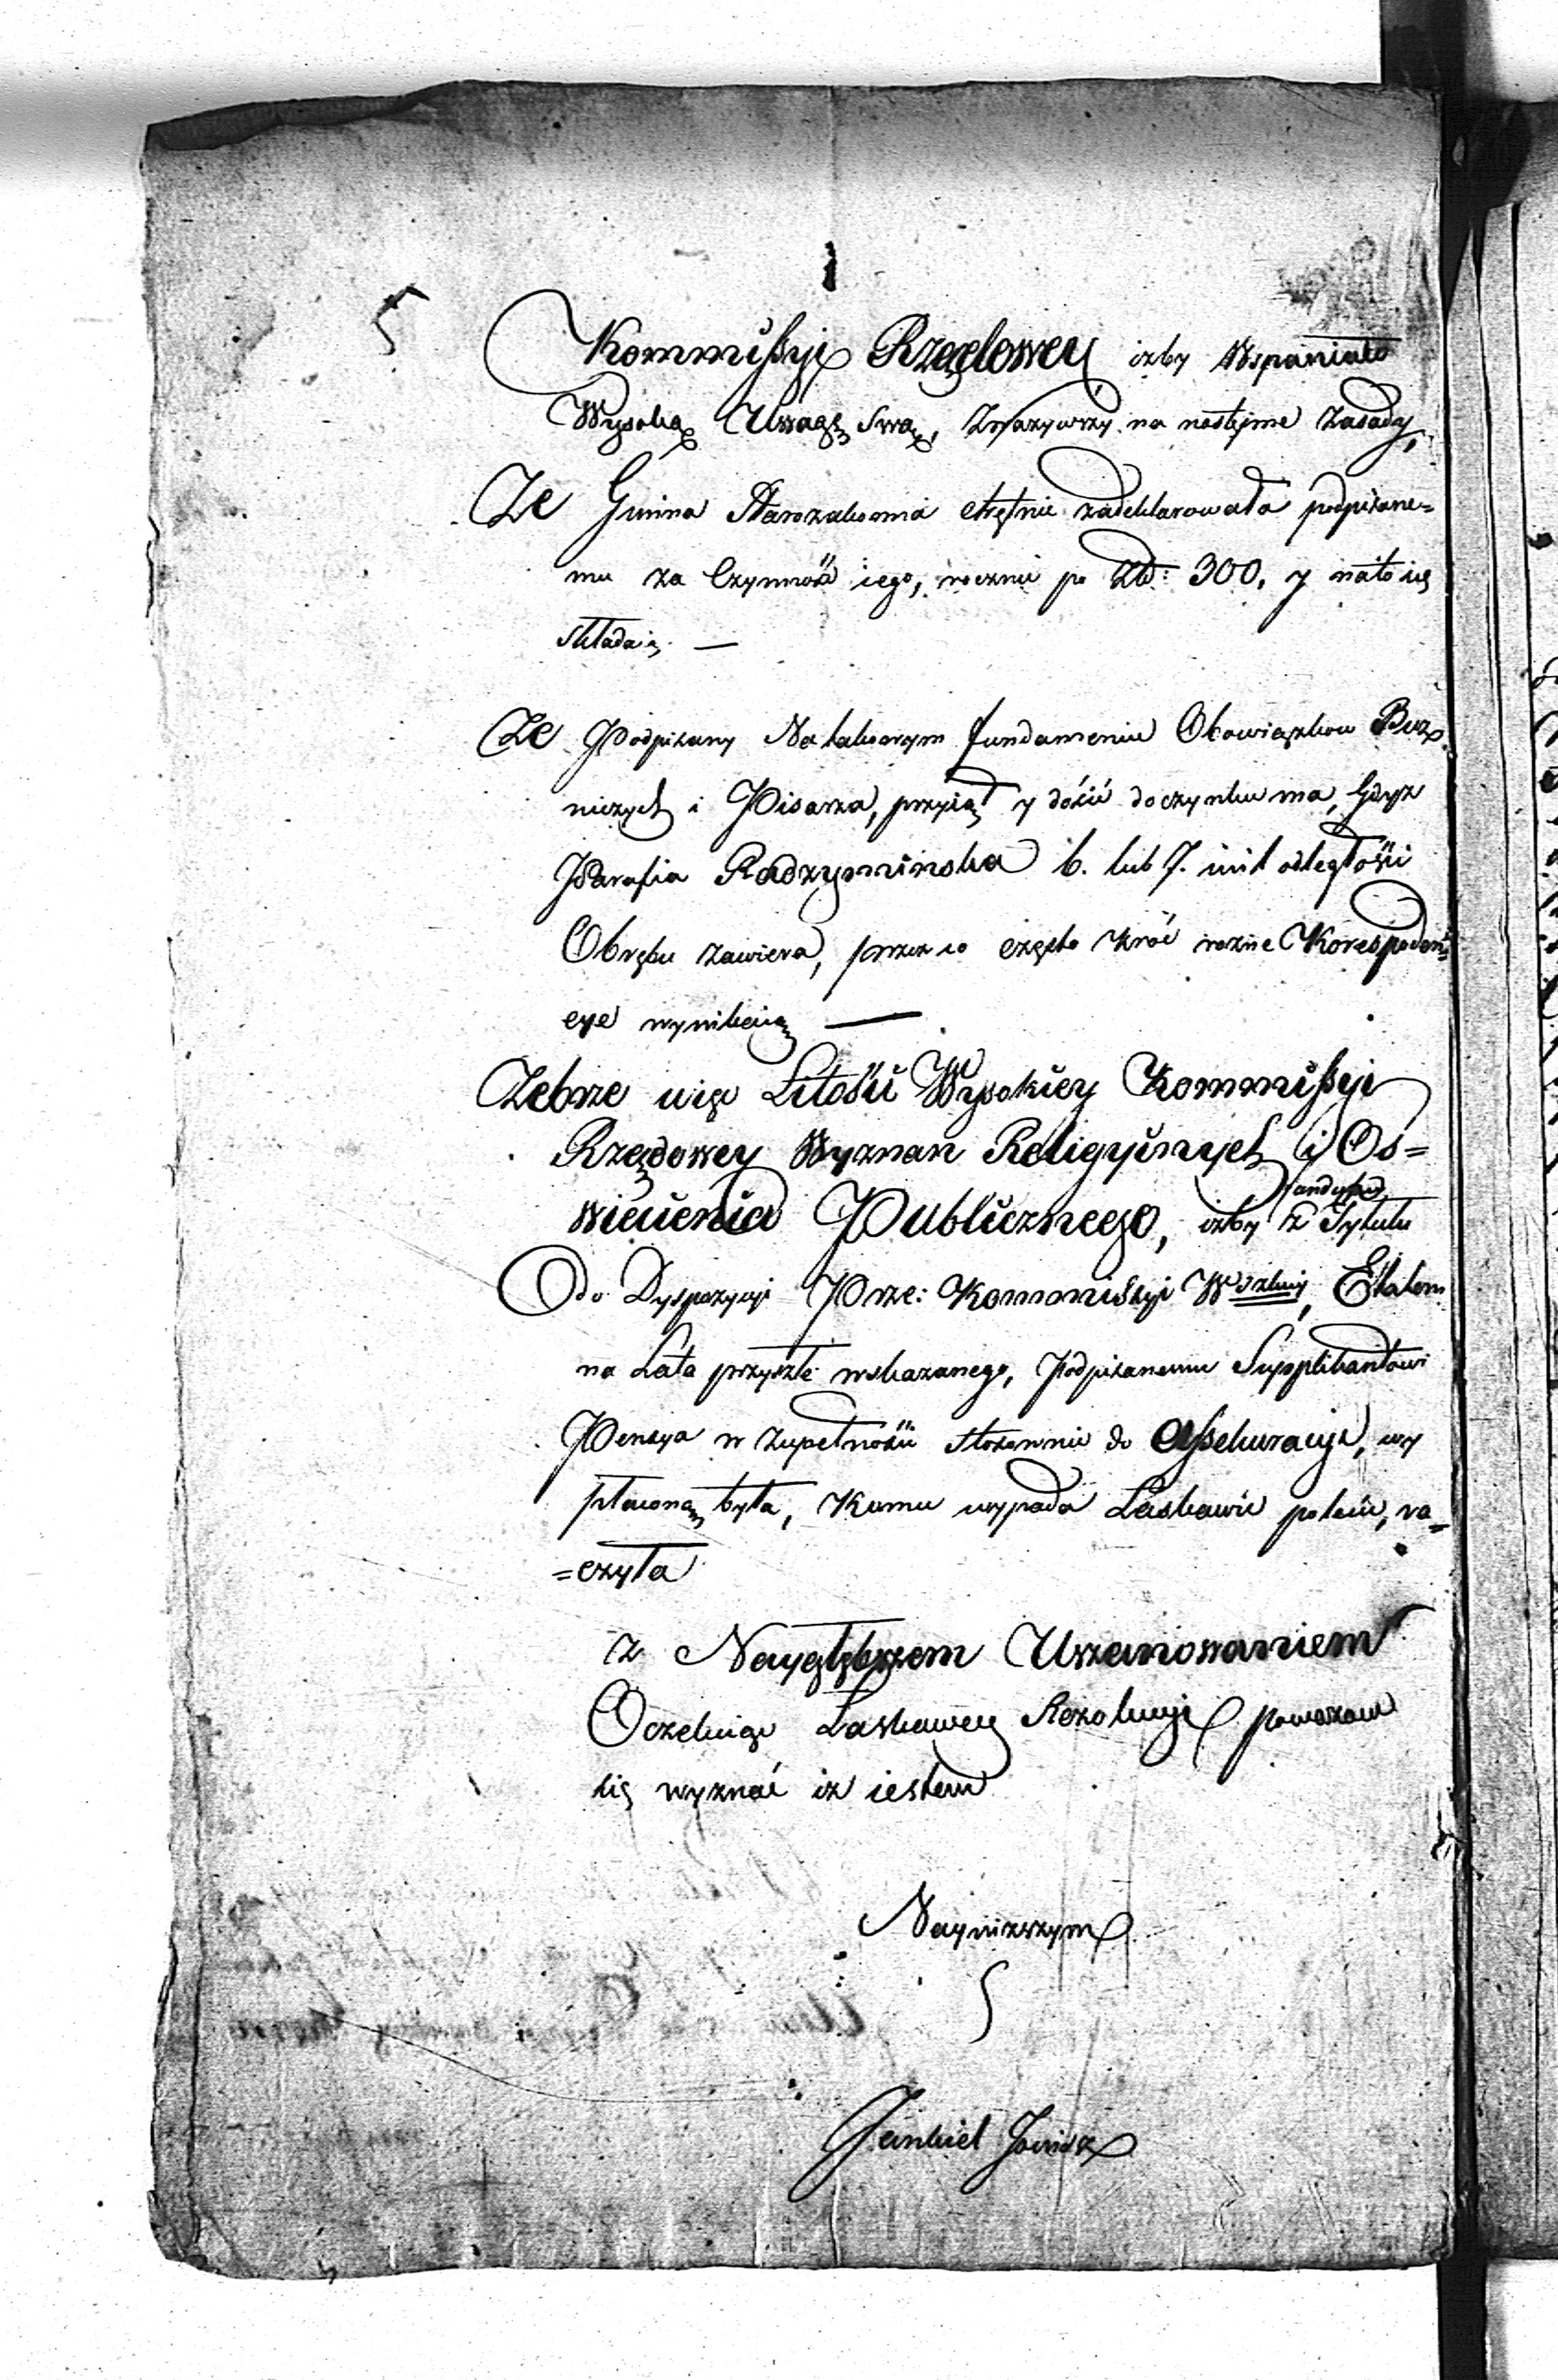 5
Kommissyi Rządowey izby Wspaniale
Wysoką Uwagę Swą, Zważywszy na nastęjme Zasady,
Ze Gmina Starozakonna chętnie zadeklarowała podpisane=
mu za Czynność iego, rocznie po Złł: 300, y nato się
składaią. —
Ze Podpisany Na takowym fundamencie Obowiązkow Buz
niczych i Pisarza, przyiął y dosić do czynku ma, Gdyz
Parafia Radzyminska 6. lub 7. mil odległości
Obrębu zawiera, przez co często kroć rozne Korespoden=
cye wynikaią —
Zebrze więc Litości Wysokiey Kommissyi
Rządowey Wyznan Religyinych i Os=
wiecenia Publicznego, izby z Tytułu
Do Dyspozycyi Prze: Kommissyi Etatem
na Lata przyszłe wskazanego, Podpisanemu Supplikantowi
Pensya w Zupełności stosownie do Assekuracyi, wy
płaconą była, Komu wypada Laskawie polecić, ra=
=czyła
z Nayglębszem Uszanowaniem
Oczekuiąc Łaskawey Rezolucyi powazam
się wyznać iz iestem
Naynizszym
S
Jankiel